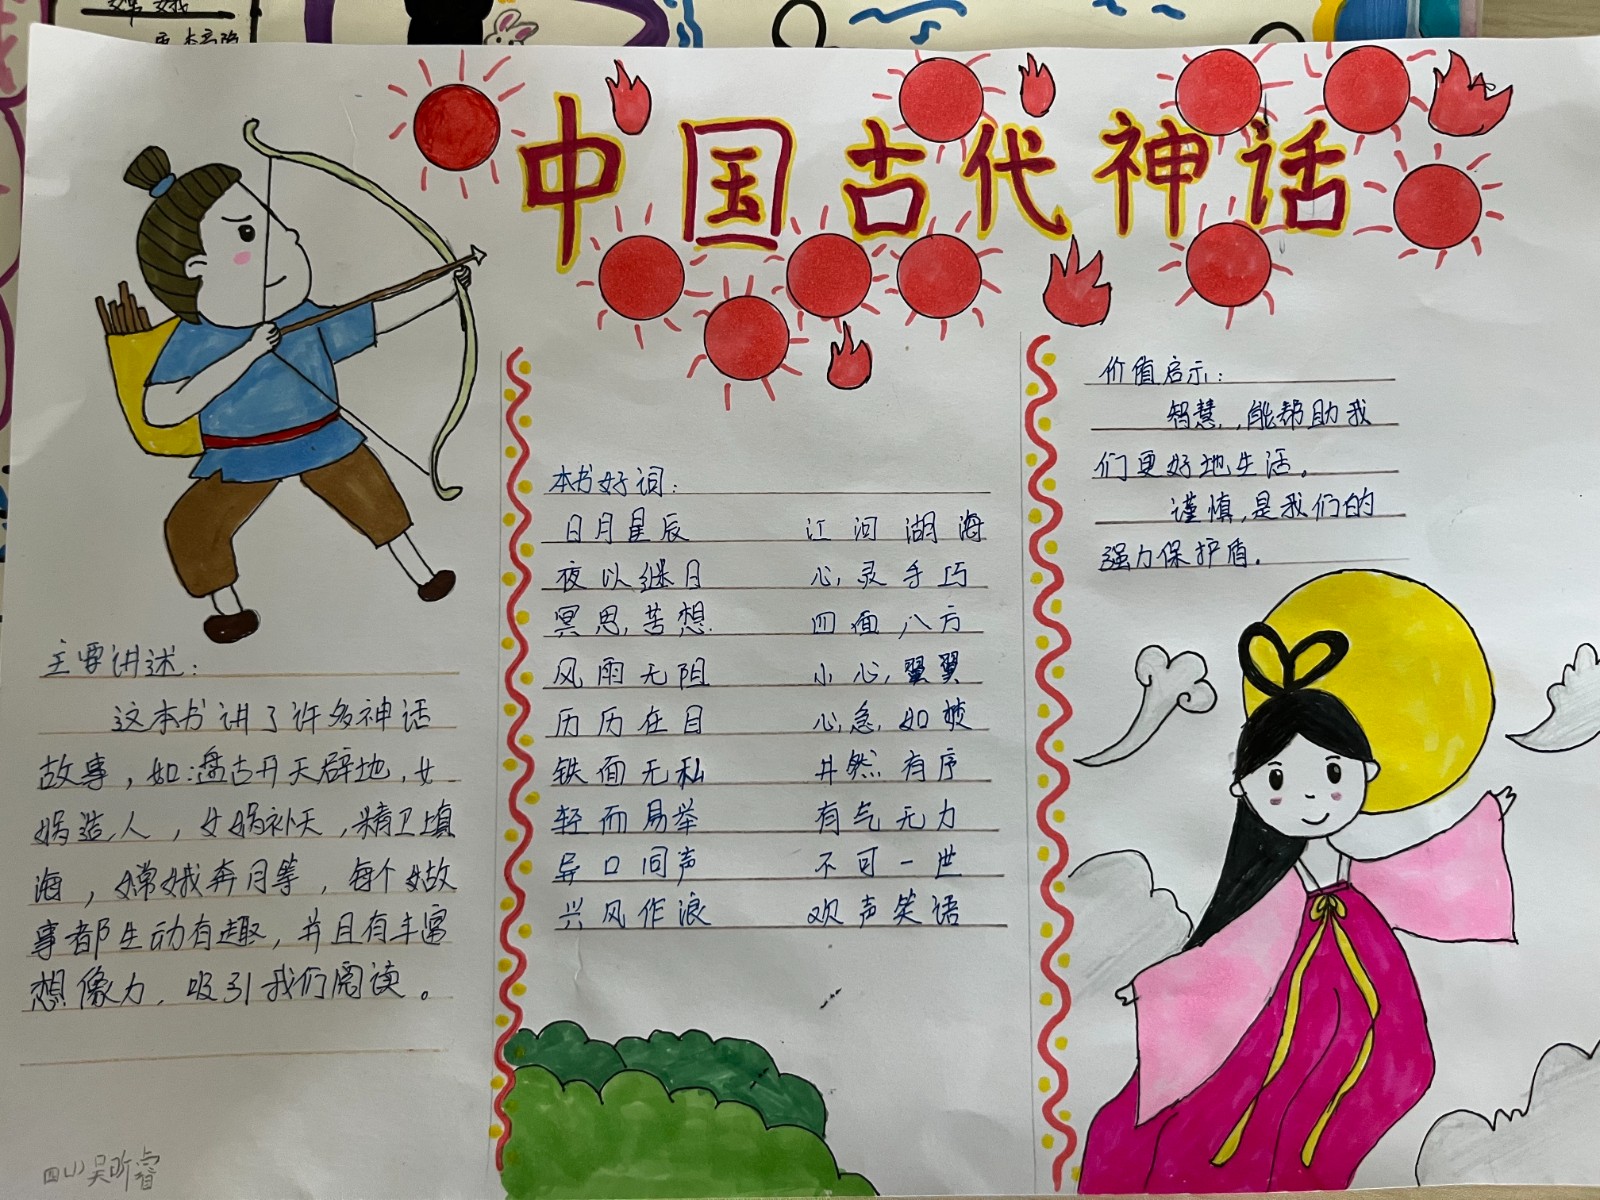 中国古代神话
主要讲述：
这本书讲了许多神话
故事，如：盘古开天辟地，女
娲造人，女娲补天，精卫填
海，嫦娥奔月等，每个故
事都生动有趣，并且有丰富
想像力，吸引我们阅读。
本书好词：
日月星辰 江河湖海
夜以继日 心灵手巧
冥思苦想 四面八方
风雨无阻 小心翼翼
历历在目 心急如焚
铁面无私 井然有序
轻而易举 有气无力
异口同声 不可一世
兴风作浪 欢声笑语
价值启示：
智慧，能帮助我
们更好地生活。
谨慎，是我们的
强力保护盾。